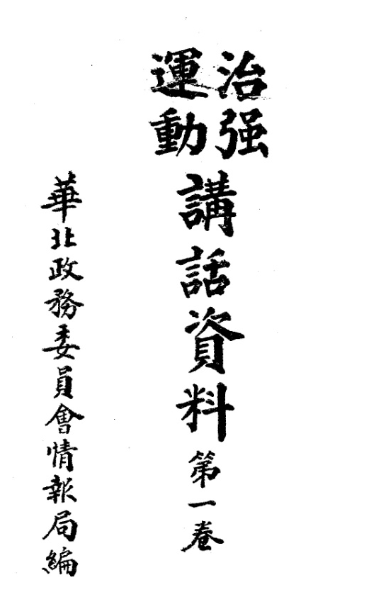 治强
運動
講話資料 第一卷
華北政務委員會情報局編